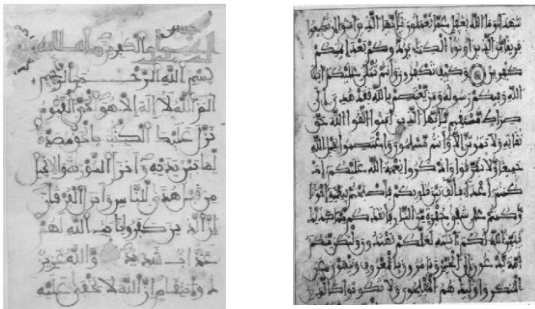 بسم الله الرحمن الرحيم
الم الله لا اله الا هو الحي القيوم
نزل عليك الكتب بالحق مصدقا
لما بين يديه وانزل التورية والانجيل
من قبل هدى للناس وانزل الفرقان
ان الذين كفروا بايت الله لهم
عذاب شديد والله عزيز
ذو انتقام ان الله لا يخفى عليه
شهداء وما الله بغفل عما تعملون يايها الذين امنوا ان تطيعوا
فريقا من الذين اوتوا الكتب يردوكم بعد ايمنكم
كفرين وكيف تكفرون وانتم تتلى عليكم ايت
الله وفيكم رسوله ومن يعتصم بالله فقد هدي الى
صراط مستقيم يايها الذين امنوا اتقوا الله حق
تقاته ولا تموتن الا وانتم مسلمون واعتصموا بحبل الله
جميعا ولا تفرقوا واذكروا نعمة الله عليكم اذ
كنتم اعداء فالف بين قلوبكم فاصبحتم بنعمته اخوانا
وكنتم على شفا حفرة من النار فانقذكم منها كذلك
يبين الله لكم ايته لعلكم تهتدون ولتكن منكم
امة يدعون الى الخير ويامرون بالمعروف وينهون عن
المنكر واوليك هم المفلحون ولا تكونوا كالذين